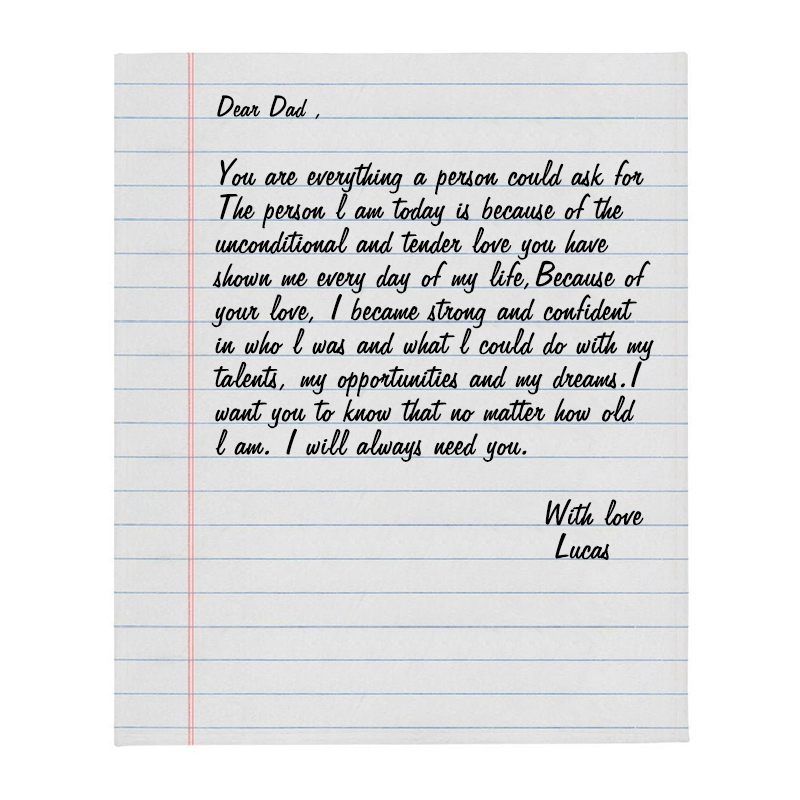 Dear Dad ,
You are everything a person could ask for
The person l am today is because of the
unconditional and tender love you have
shown me every day of my life,Because of
your love, I became strong and confident
in who l was and what l could do with my
talents, my opportunities and my dreams.I
want you to know that no matter how old
l am. I will always need you.
With love
Lucas